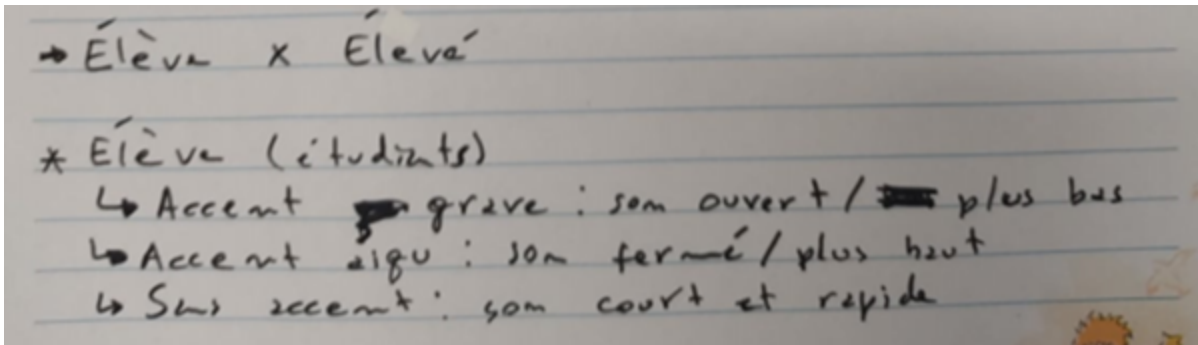 → Élève x Élevé
* Élève (étudiants)
↳ Accent grave : som ouvert / plus bas
↳ Accent aigu : som fermé / plus haut
↳ Sans accent : som court et rapide